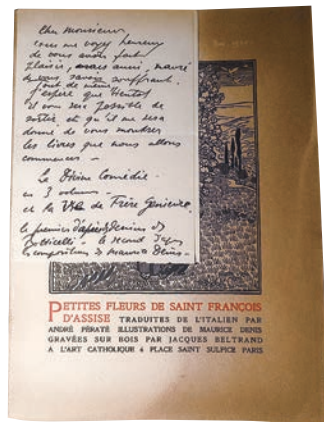 Cher Monsieur
vous me voyez heureux
de vous avoir fait
plaisir, mais aussi, navré
de vous savoir souffrant.
tout de même
j'espère que bientot
il vous sera possible de
sortir et qu'il me sera
donné de vous montrer
les livres que nous allons
commencer. —
La Divine Comédie -
en 3 volumes -
et la Vie de Frère Genièvre.
le premier d'après dessins de
Botticelli - le second d'après
les compositions de Maurice Denis -
PETITES FLEURS DE SAINT FRANÇOIS
D'ASSISE TRADUITES DE L'ITALIEN PAR
ANDRÉ PÉRATÉ ILLUSTRATIONS DE MAURICE DENIS
GRAVÉES SUR BOIS PAR JACQUES BELTRAND
A L'ART CATHOLIQUE 6 PLACE SAINT SULPICE PARIS